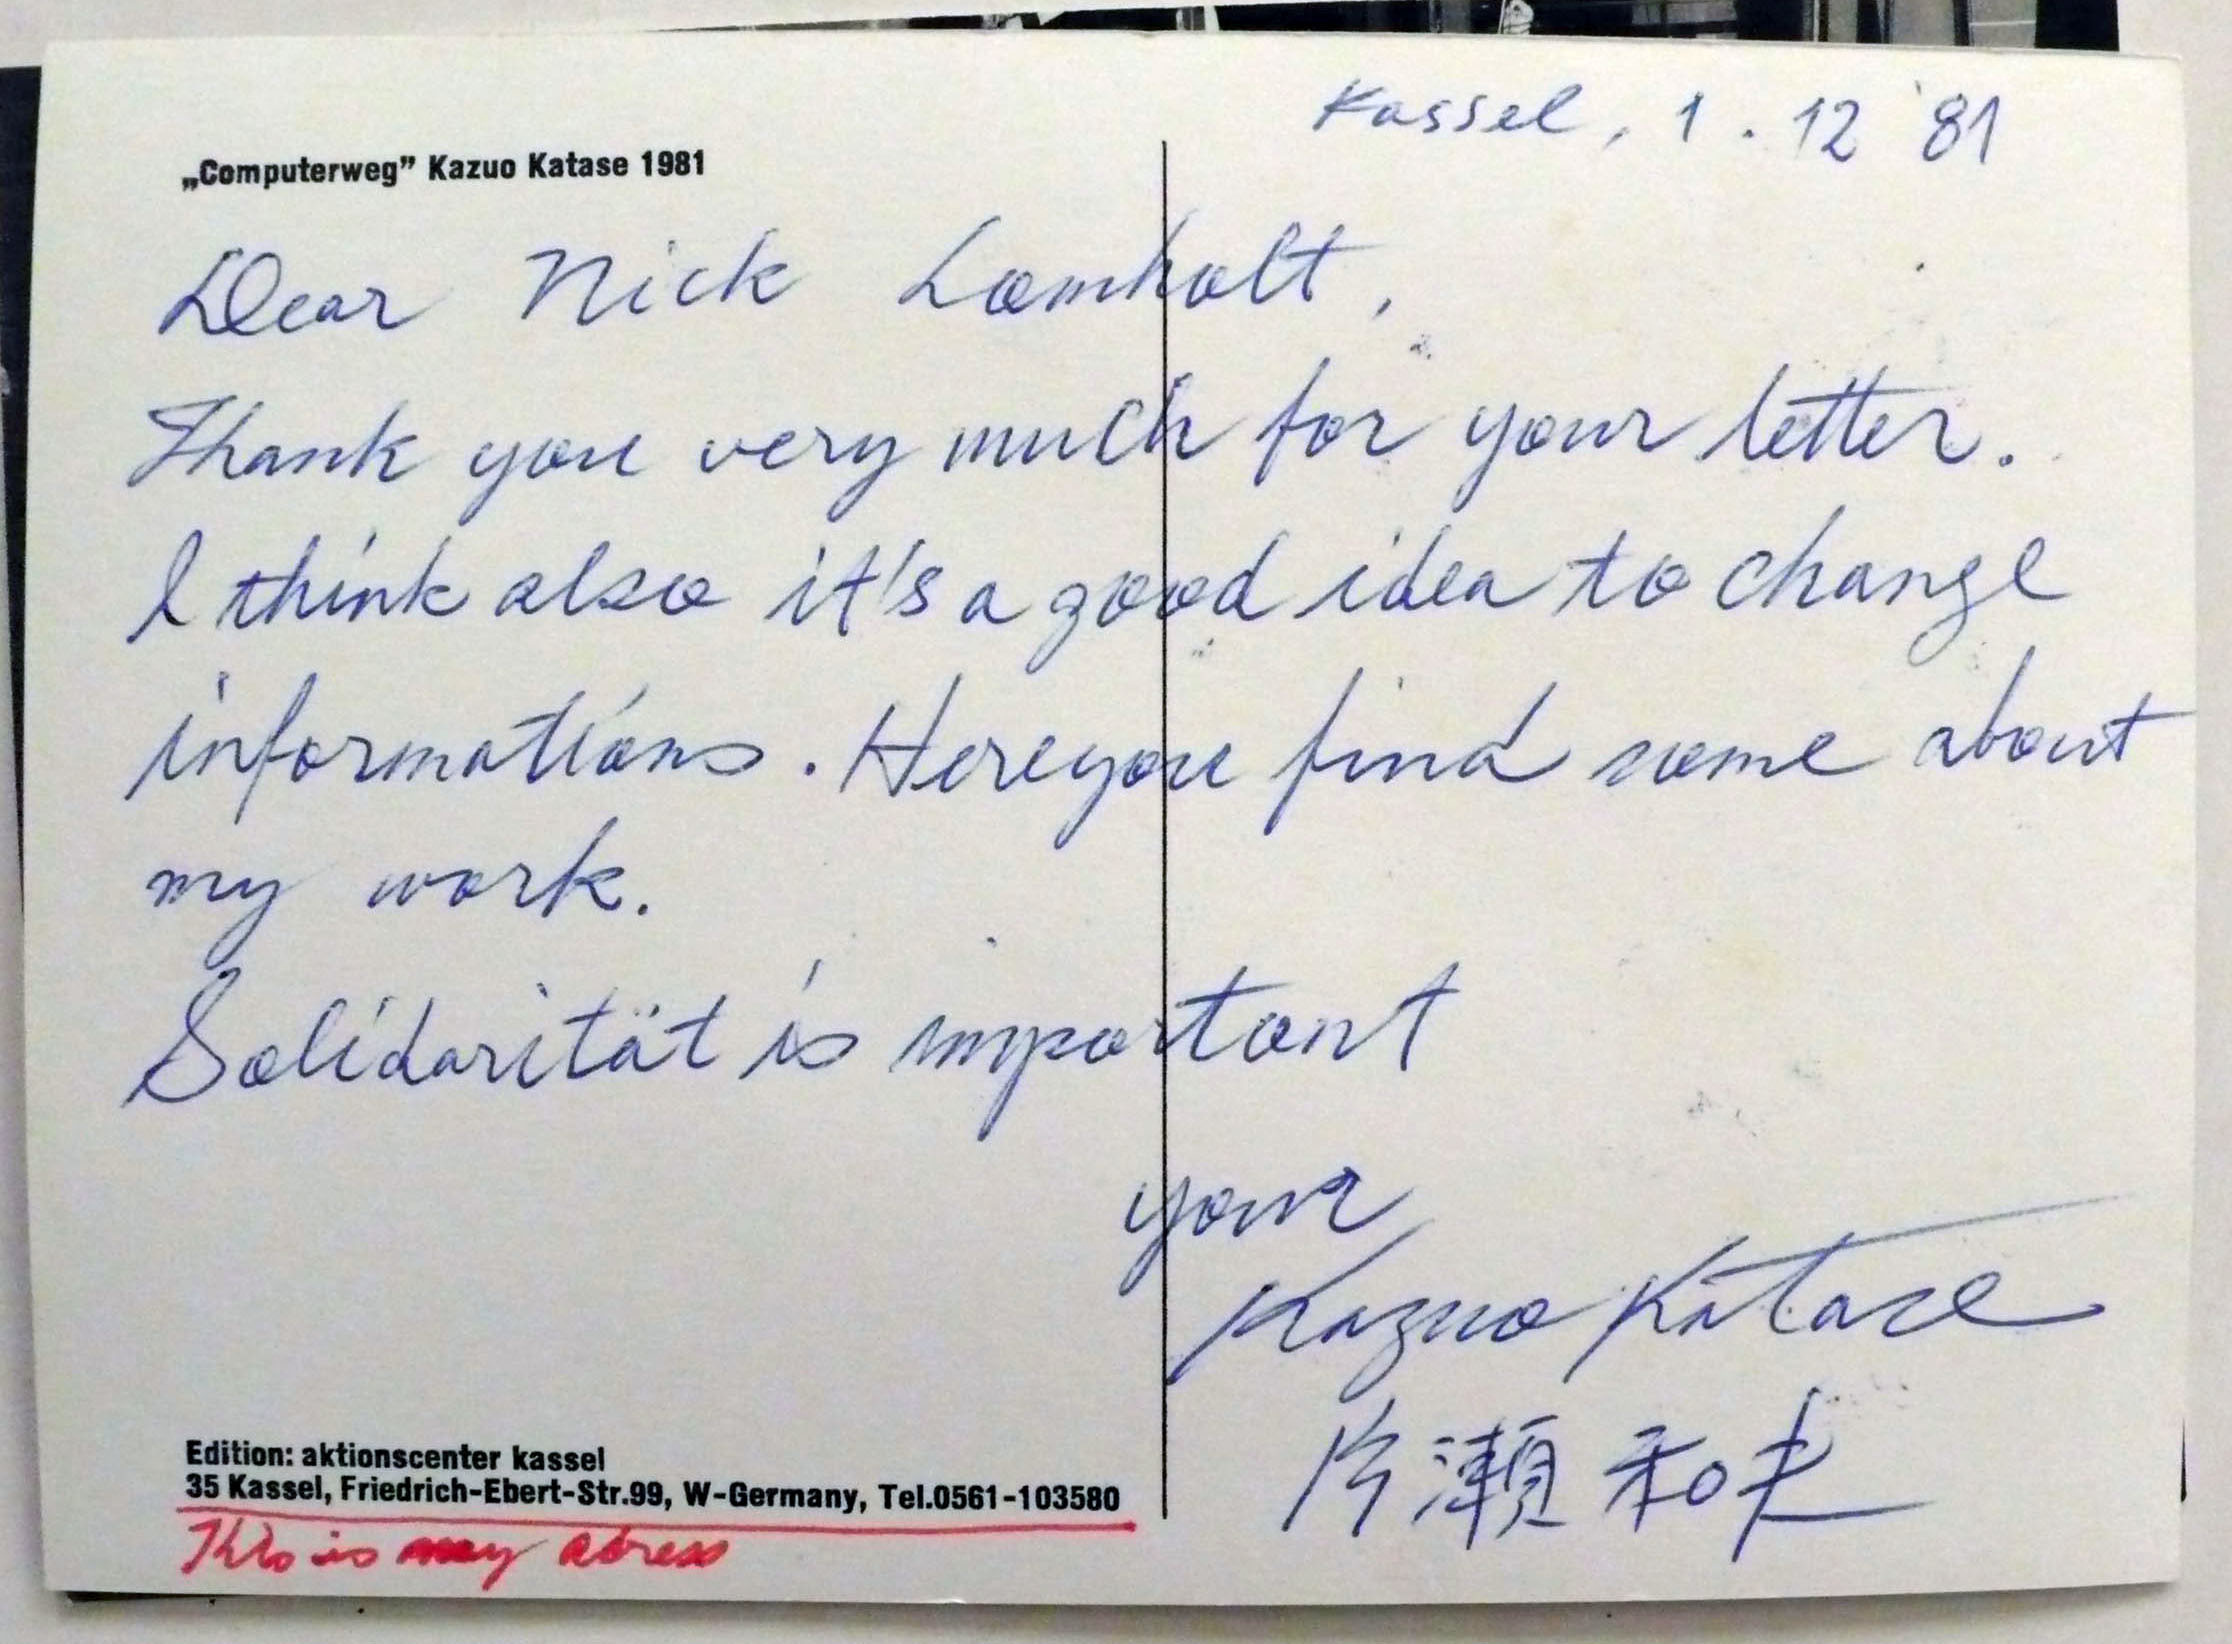 Kassel, 1. 12 '81
„Computerweg” Kazuo Katase 1981
Dear Nick Lomholt,
Thank you very much for your letter.
I think also it's a good idea to change
informations. Here you find some about
my work.
Solidarität is important
your
Kazuo Katase
片瀬和夫
Edition: aktionscenter kassel
35 Kassel, Friedrich-Ebert-Str.99, W-Germany, Tel.0561-103580
This is my adress